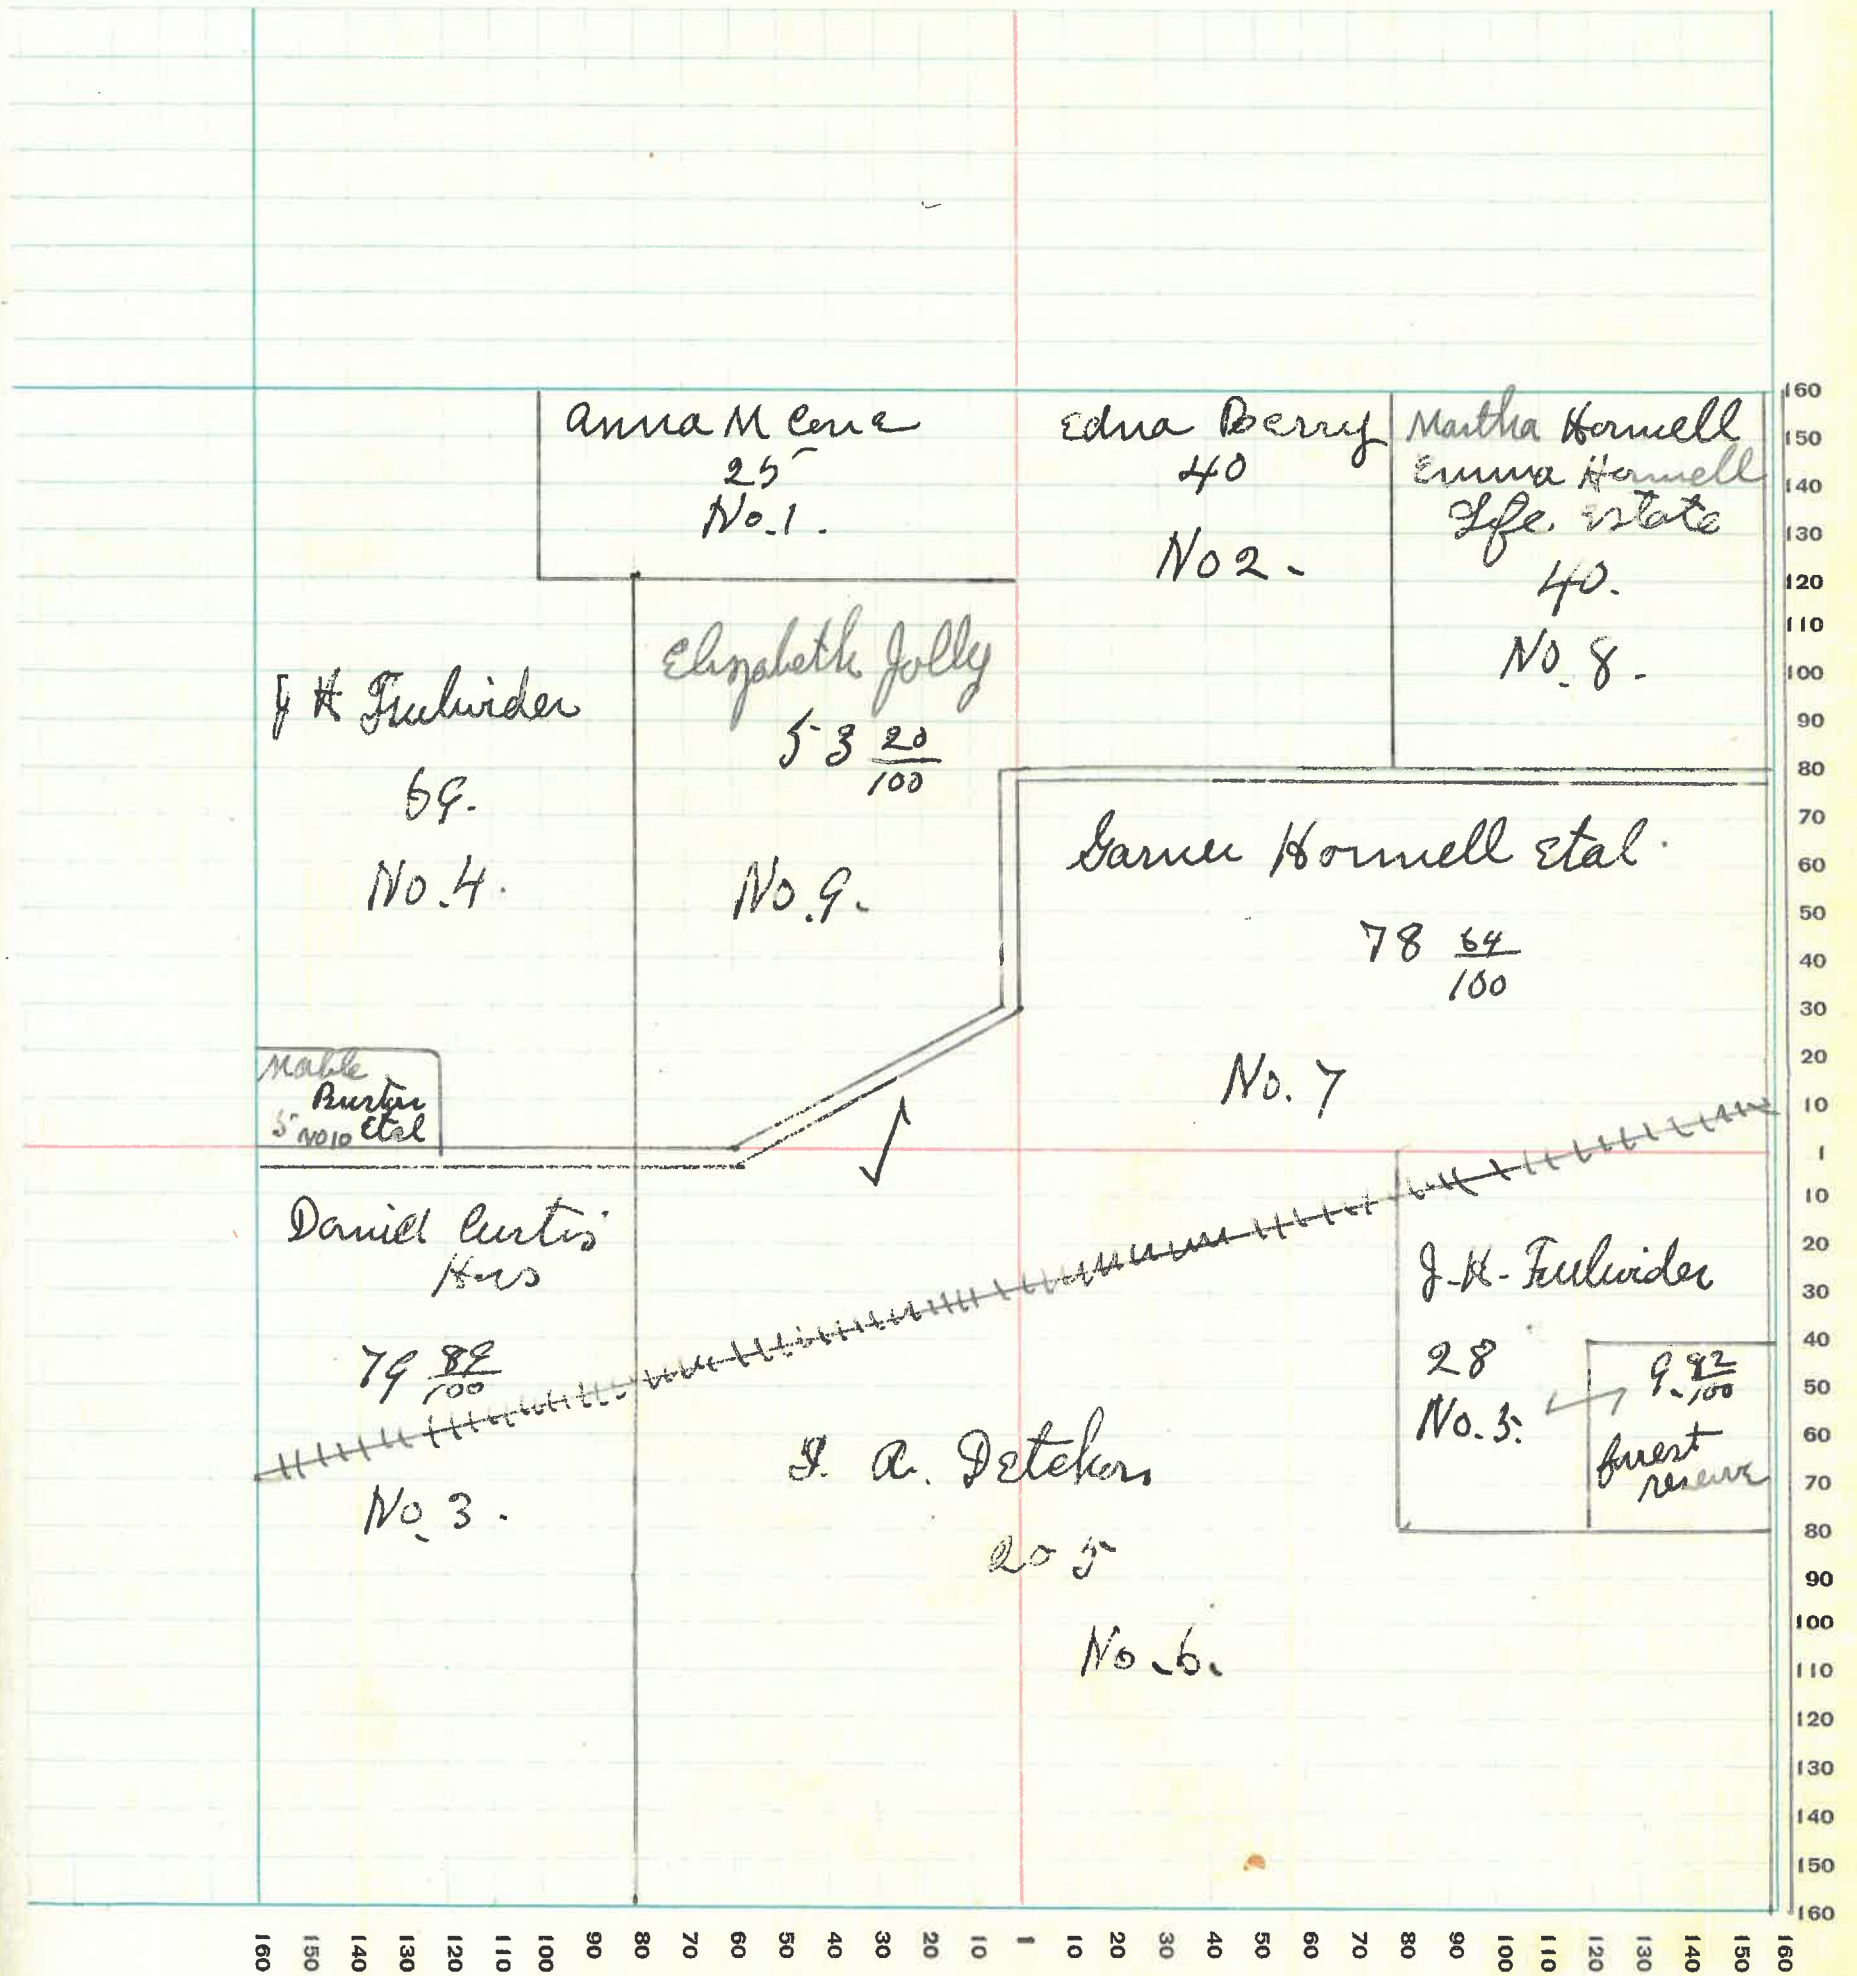 Anna M Cone
25
No. 1.
Edna Berry
40
No 2.
Martha Hornell
Emma Hornell
Life Estate
40.
No. 8.
J H Fulwider
69.
No. 4.
Elizabeth Jolly
53 20/100
No. 9.
Garner Hornell Etal.
78 64/100
No. 7
Mable
Burton
5 No 10 Etal
Daniel Curtis
Hrs
79 89/100
No. 3.
205
No. 6.
J. H. Fulwider
28
No. 5.
9. 92/100
forest
reserve
160
150
140
130
120
110
100
90
80
70
60
50
40
30
20
10
1
10
20
30
40
50
60
70
80
90
100
110
120
130
140
150
160
160 150 140 130 120 110 100 90 80 70 60 50 40 30 20 10 1 10 20 30 40 50 60 70 80 90 100 110 120 130 140 150 160